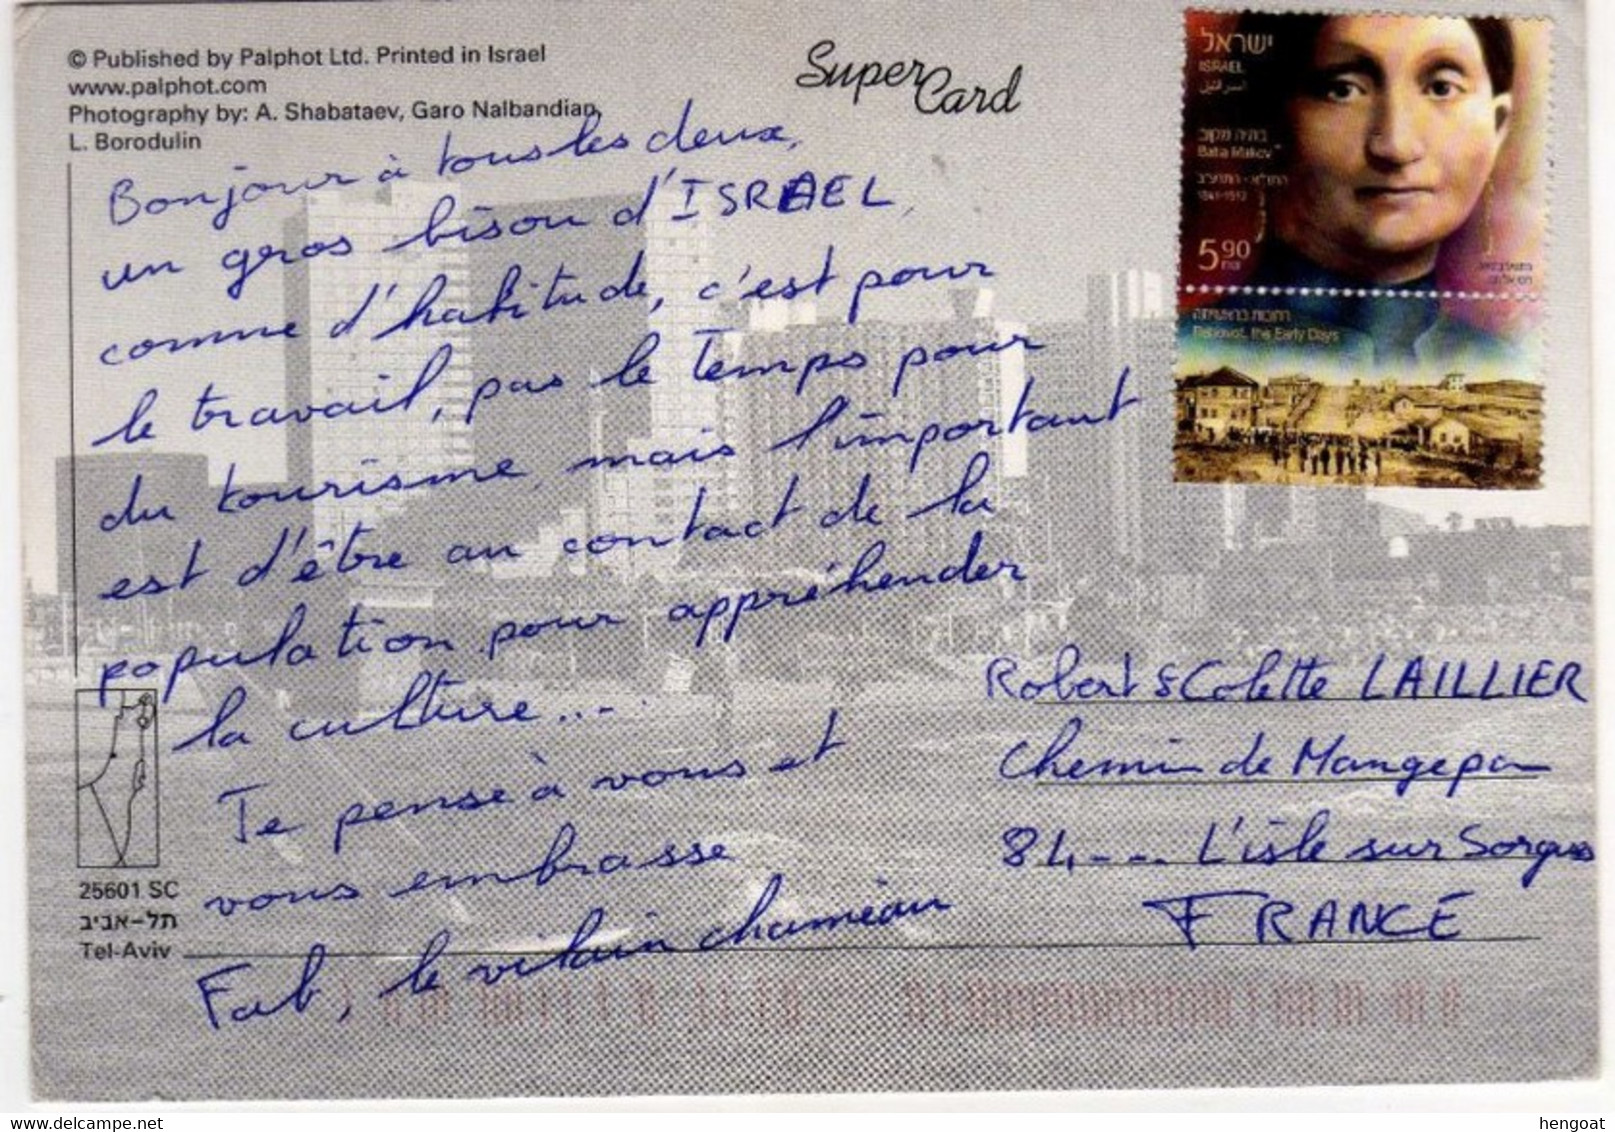 © Published by Palphot Ltd. Printed in Israel
www.palphot.com
Photography by: A. Shabataev, Garo Nalbandian,
L. Borodulin
Super Card
ישראל
ISRAEL
اسرائيل
בתיה מקוב
Batia Makov
1841-1912
5.90
רחובות בראשיתה
Rehovot, the Early Days
Bonjour à tous les deux,
un gros bisou d'ISRAEL,
comme d'habitude, c'est pour
le travail, pas le temps pour
du tourisme, mais l'important
est d'être au contact de la
population pour appréhender
la culture....
Je pense à vous et
vous embrasse
Fab, le vilain chaméau
Robert & Colette LAILLIER
Chemin de Mangepan
84--- L'isle sur Sorgues
FRANCE
25601 SC
תל-אביב
Tel-Aviv
hengoat